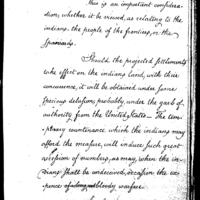 this is an important considera-
tion, whether it be viewed, as relating to the
indians, the people of the frontiers, or the
Spaniards.
Should the projected settlements
take effect on the indians land, with their
concurrence, it will be obtained under some
specious delusions, probably, under the garb of
authority from the United States — The tem-
porary countenance which the indians may
afford the measure, will induce such great
accession of numbers, as may, when the in-
dians shall be undeceived, occasion the ex-
pence of a bloody warfare.